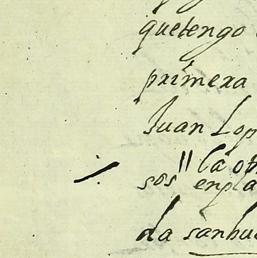 quetengo
primera
Juan Lop
" la otr
sos enpla
da sanbu